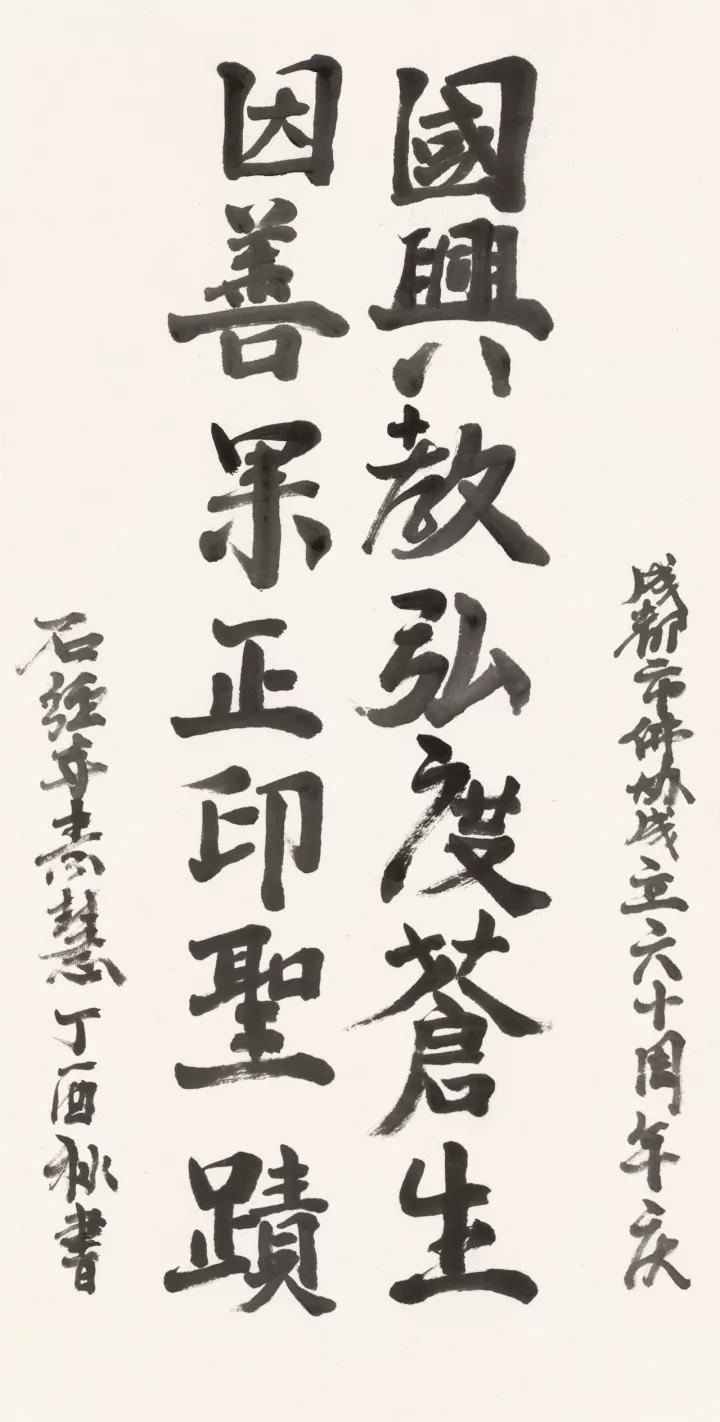 成都市佛协成立六十周年庆
國興教弘度蒼生
因善果正印聖蹟
石经寺素慧丁酉秋書